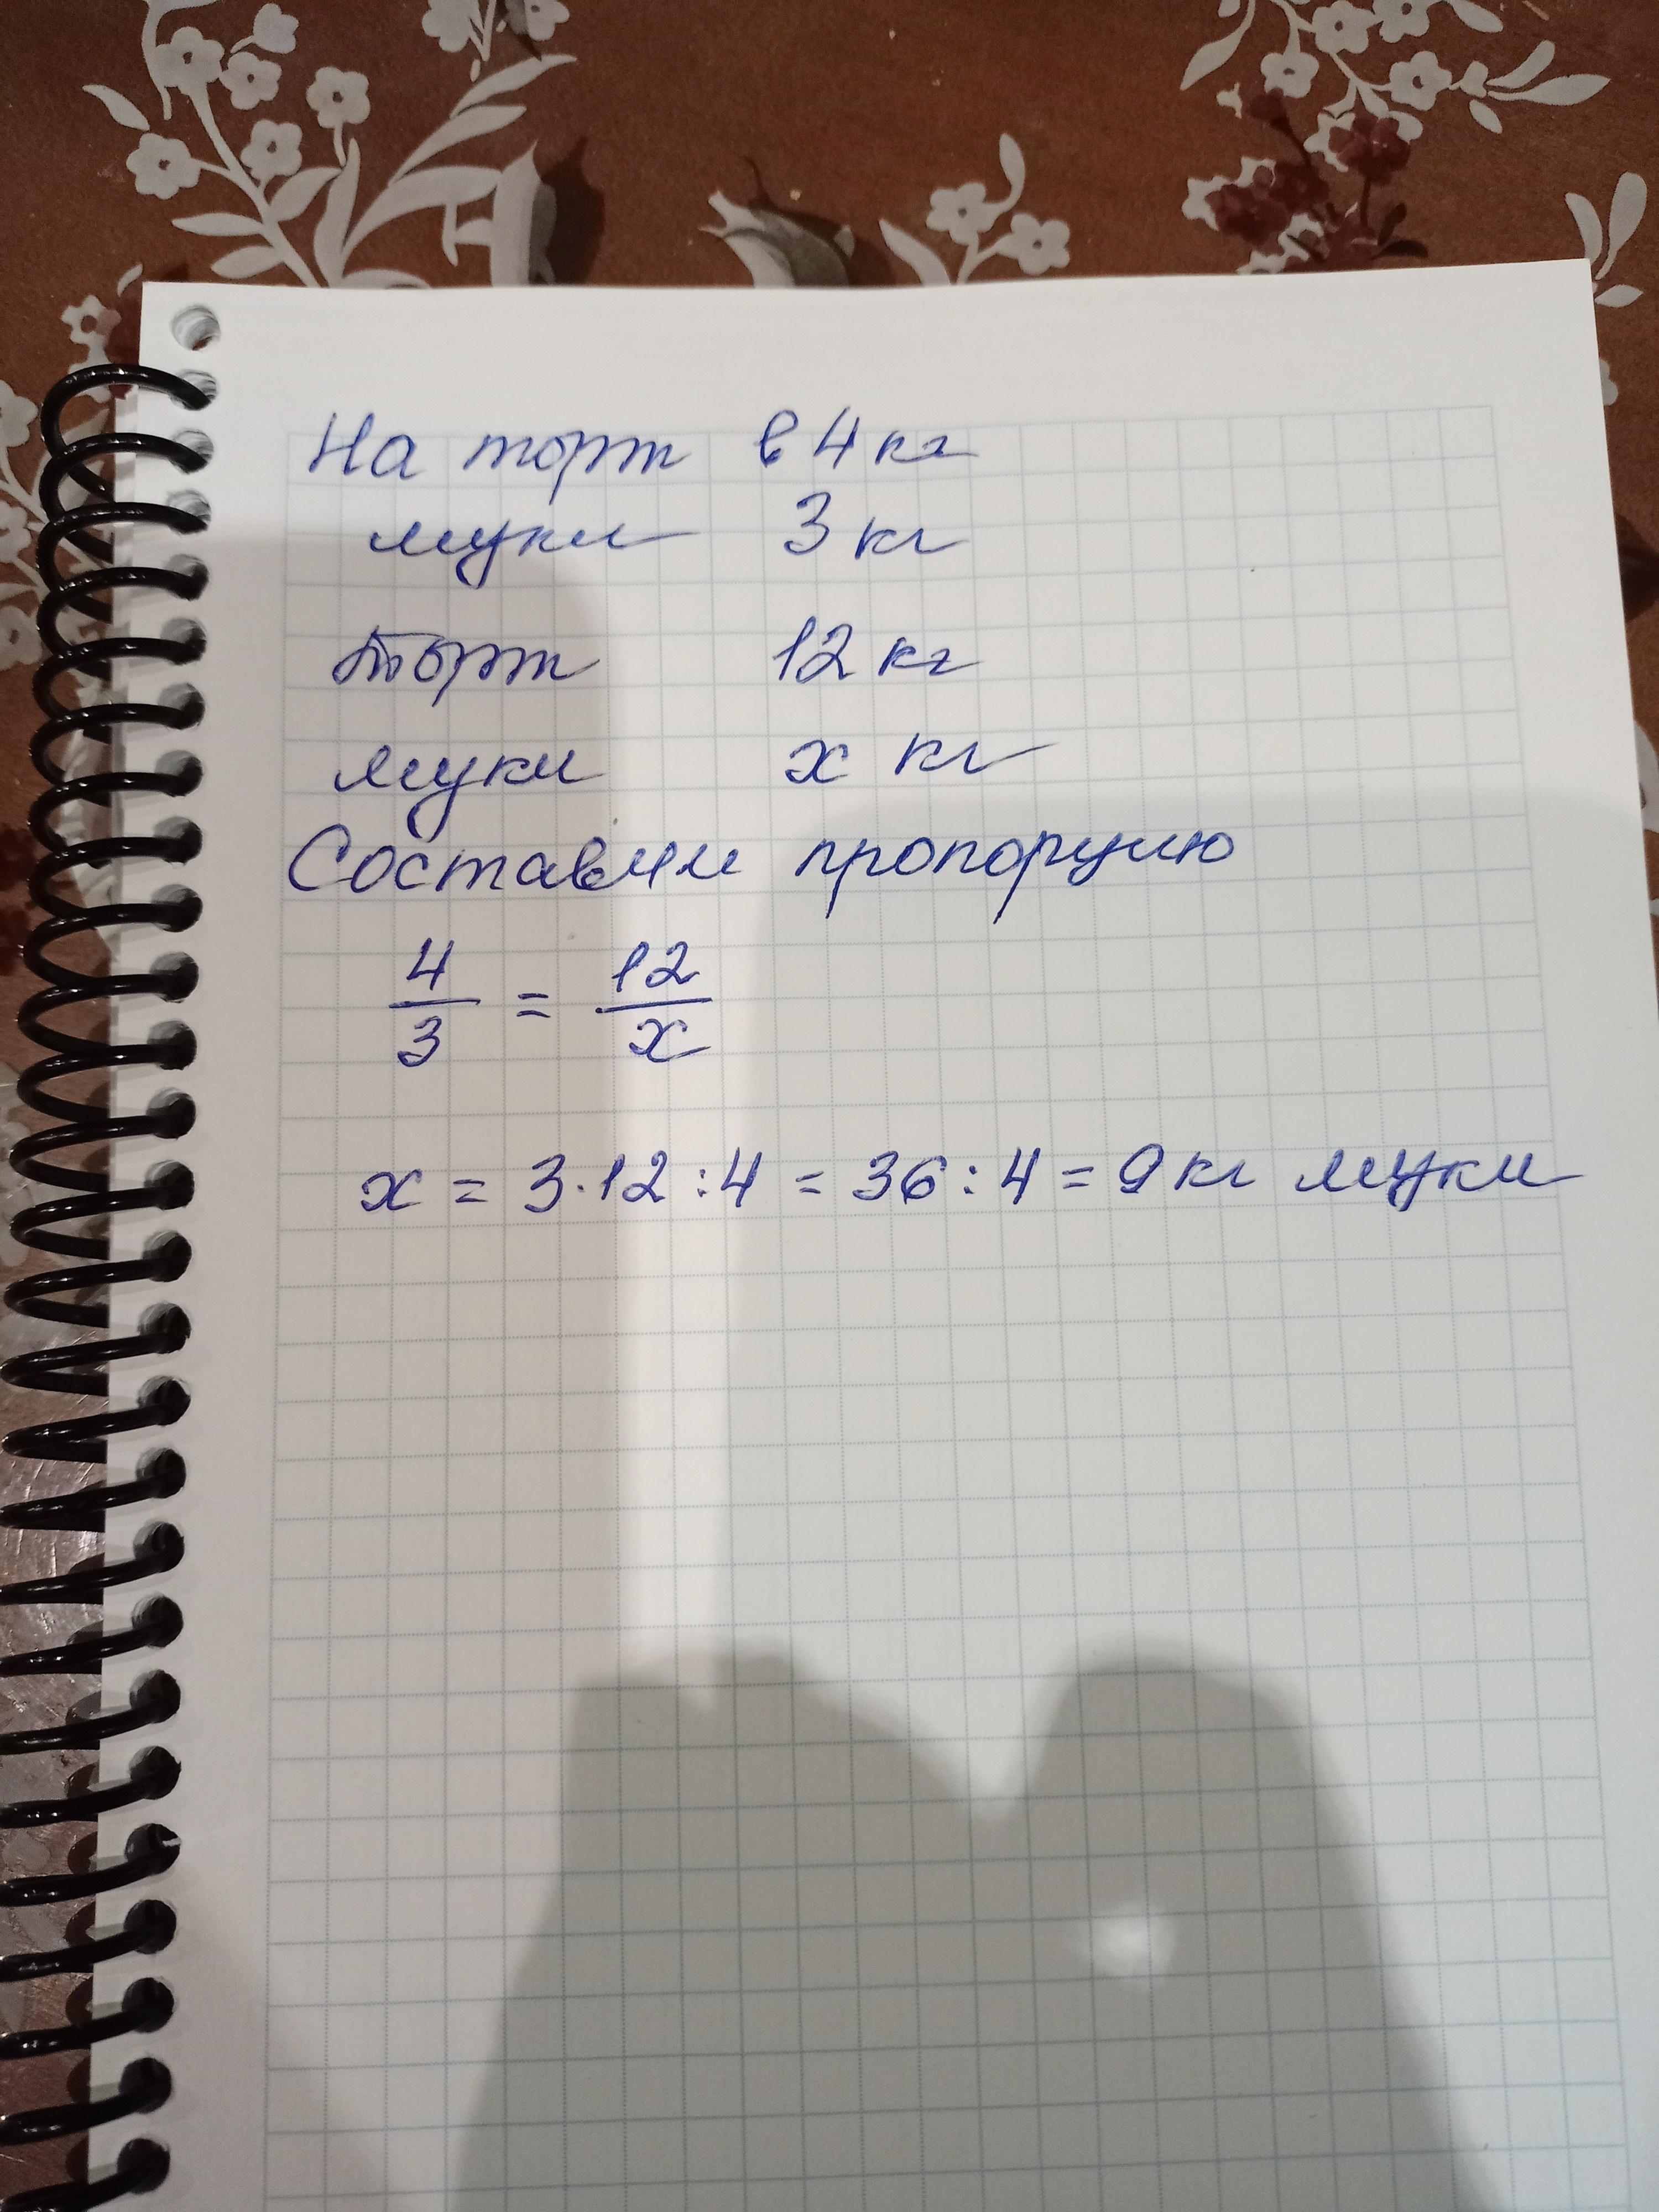 На торт в 4 кг
муки 3 кг
торт 12 кг
муки x кг
Составим пропорцию
4/3 = 12/x
x = 3·12:4 = 36:4 = 9 кг муки